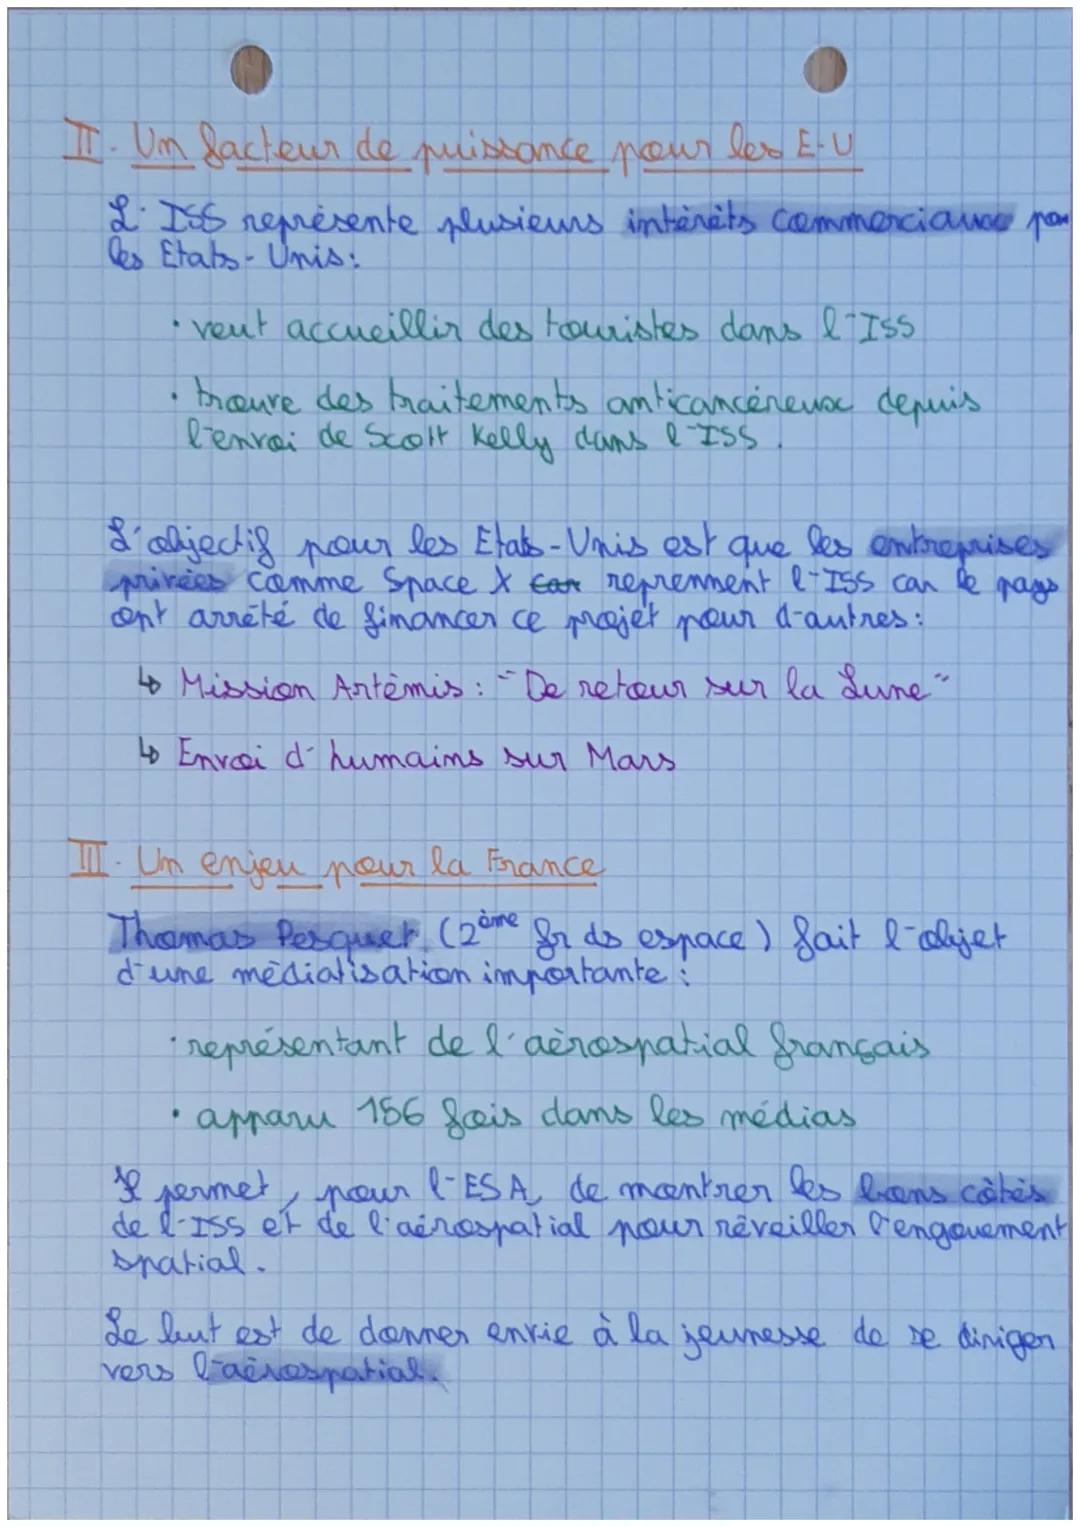 II. Un facteur de puissance pour les E-U
L'ISS représente plusieurs intérêts commerciaux pour
les Etats-Unis:
• veut accueillir des touristes dans l'ISS
• trouve des traitements anticancéreux depuis
l'envoi de Scott Kelly dans l'ISS.
L'objectif pour les Etats-Unis est que les entreprises
privées comme Space X car reprennent l'ISS car le pays
ont arrêté de financer ce projet pour d'autres:
↳ Mission Artémis: "De retour sur la Lune"
↳ Envoi d'humains sur Mars
III. Un enjeu pour la France
Thomas Pesquet (2ème fr ds espace) fait l'objet
d'une médiatisation importante:
• représentant de l'aérospatial français
• apparu 156 fois dans les médias
Il permet, pour l'ESA, de montrer les bons côtés
de l'ISS et de l'aérospatial pour réveiller l'engouement
spatial.
Le but est de donner envie à la jeunesse de se diriger
vers l'aérospatial.